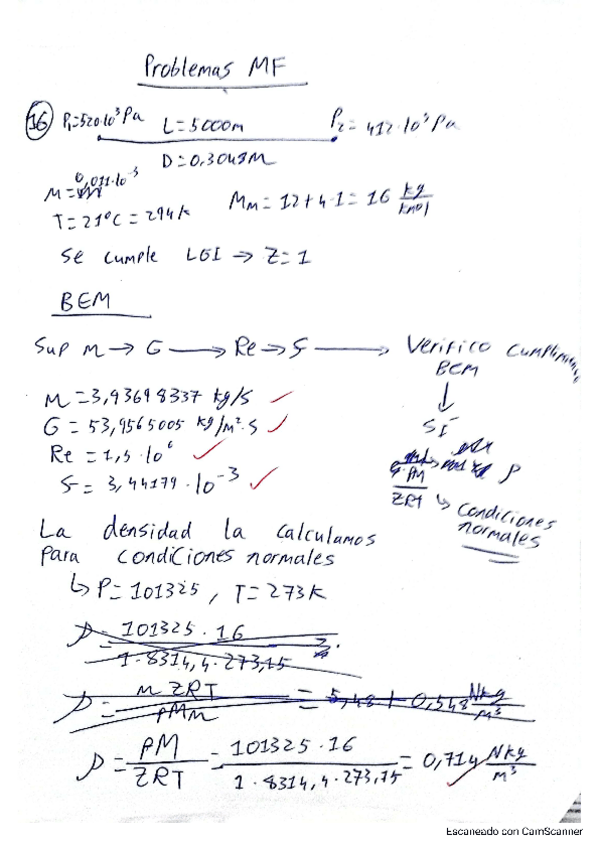 Problemas MF
16 P₁=520·10³ Pa L=5000m P₂=412·10³ Pa
D=0,3048m
M= 0,011·10⁻³
T=21ºC=294k Mm=12+4·1=16 kg/kmol
Se cumple LGI → Z=1
BEM
Sup m → G → Re → f → Verifico cumplimiento BEM
↓
SÍ
M=3,93698337 kg/s
G=53,9565005 kg/m²·s
Re=1,5·10⁶
f=3,44179·10⁻³
ρ
PM/ZRT ↳ Condiciones normales
La densidad la calculamos
para condiciones normales
↳ P=101325, T=273k
ρ= 101325·16 / 1·8314,4·273,15
ρ= m ZRT / PMm = 5,48 0,548 Nkg/m³
ρ= PM/ZRT = 101325·16 / 1·8314,4·273,15 = 0,714 Nkg/m³
Escaneado con CamScanner